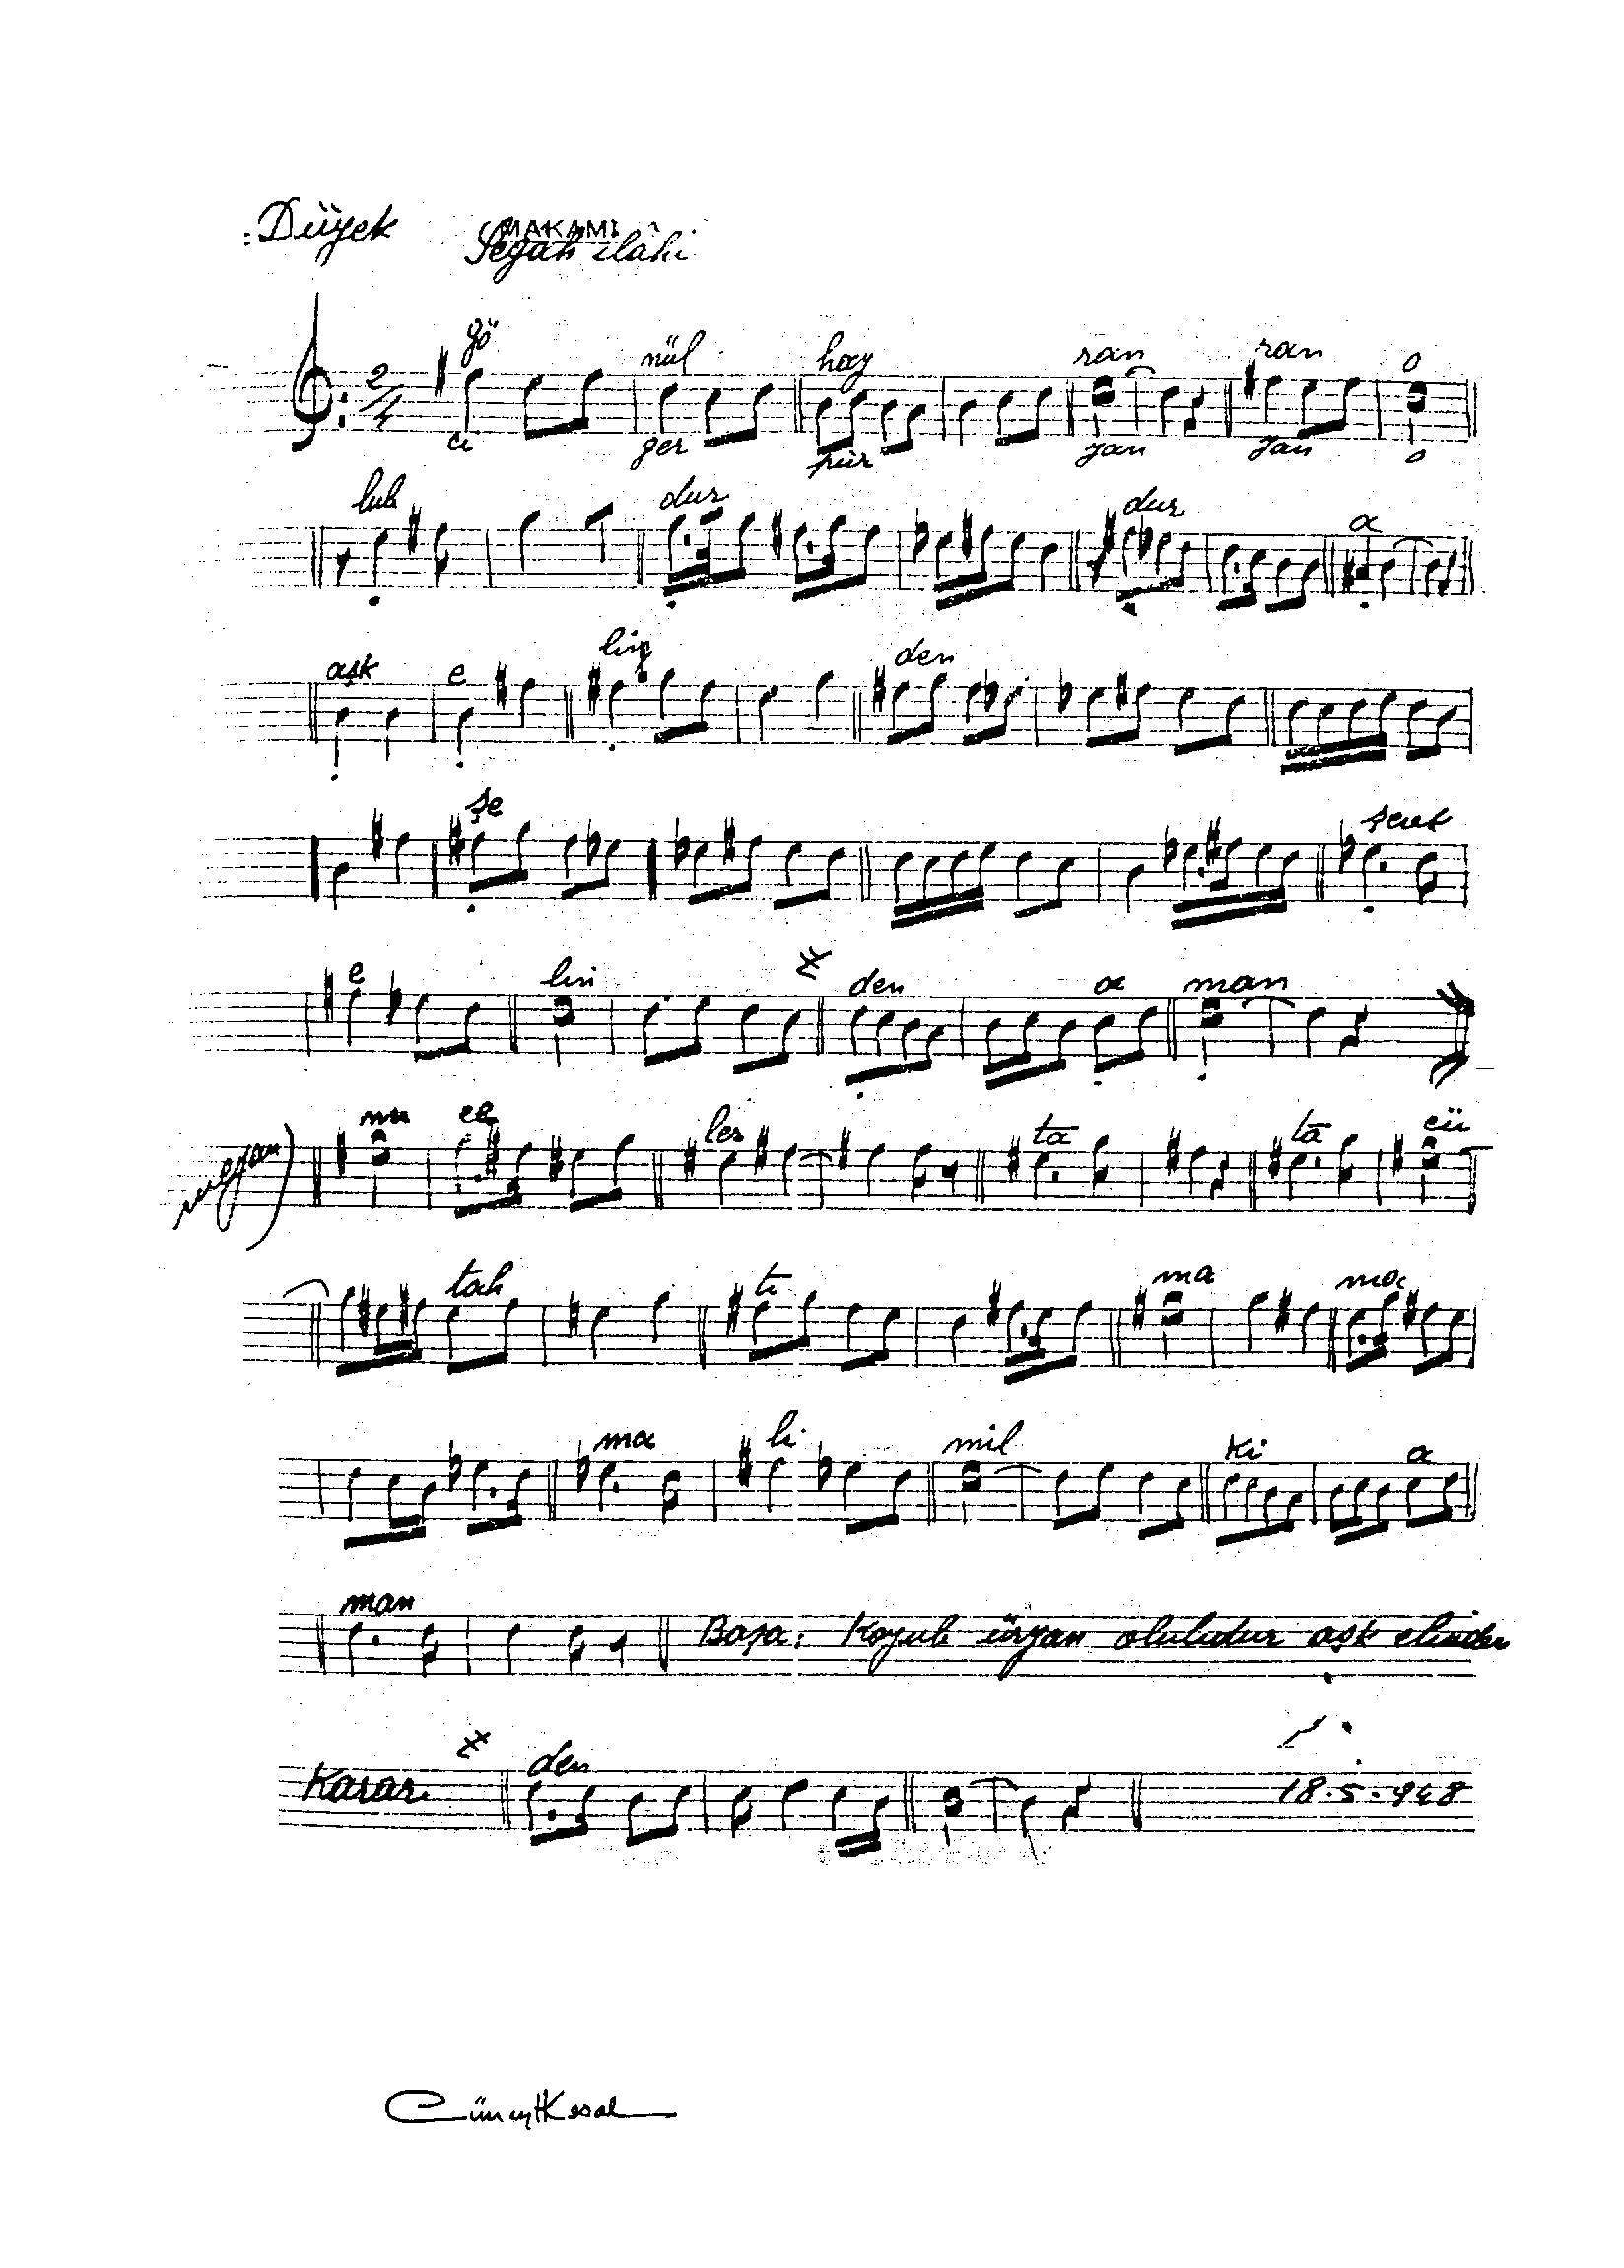 Düyek MAKAMI
Segah ilahi
2/4
gö nül hay ran ran o
ci ger pür yan yan o
lub dur dur a
aşk e lin den
şe
e lin den a man
meyan) les ta ta cü
tah ti ma ma
ma li mil ki a
man Başa: Koyub üryan olubdur aşk elinden
Karar. den 18.5.948
Cüneyt Kosal